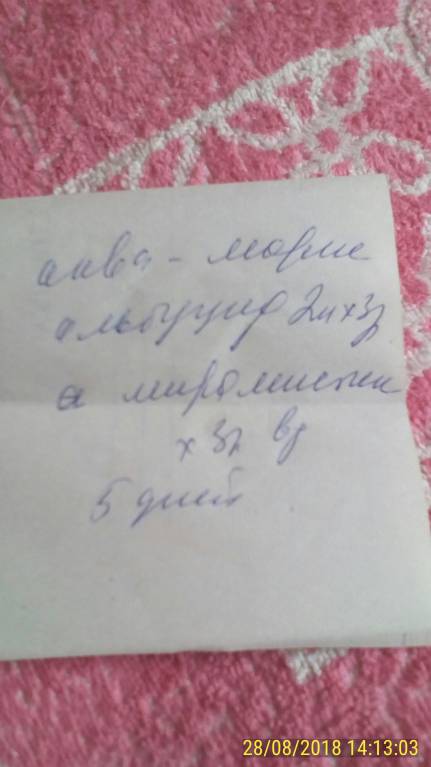 аква - марис
альбуцид 2к х 3р
а мирамистин
х 3р вд
5 дней
28/08/2018 14:13:03